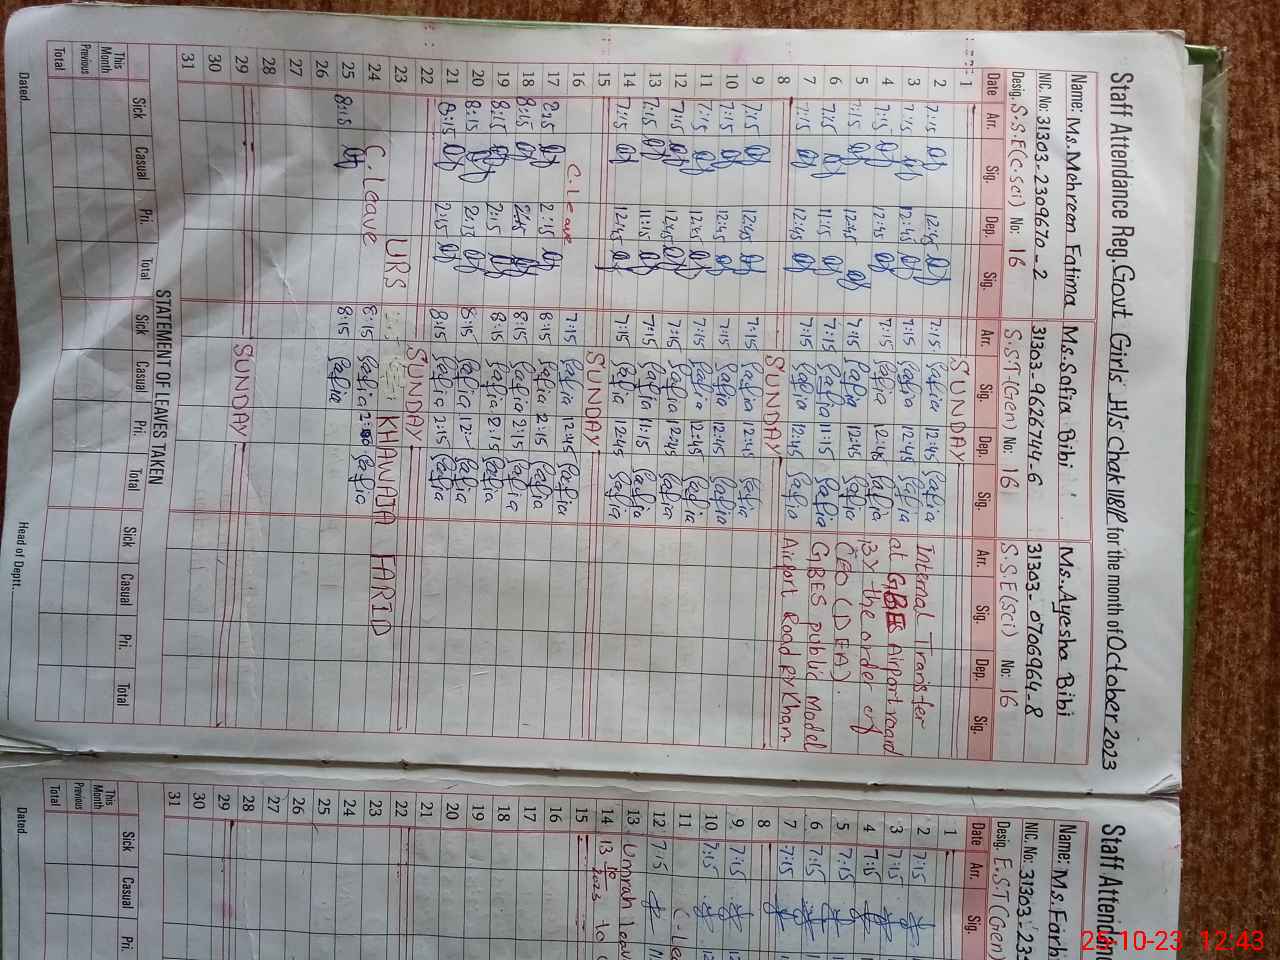 Staff Attendance Reg. Govt Girls H/s Chak 118/P for the month of October 2023
Name: Ms. Mehreem Fatima Ms. Safia Bibi Ms. Ayesha Bibi
NIC. No: 31303-2309670-2 31303-9626744-6 31303-0706964-8
Desig. S.S.E(C.Sci) No: 16 S.S.T(Gen) No: 16 S.S.E(Sci) No: 16
Date Arr. Sig. Dep. Sig. Arr. Sig. Dep. Sig. Arr. Sig. Dep. Sig.
1 SUNDAY
2 7:15 12:45 7:15 Safia 12:45 Safia Internal Transfer
3 7:15 12:45 7:15 Safia 12:45 Safia at GBES Airport road
4 7:15 12:45 7:15 Safia 12:45 Safia By the order of
5 7:15 12:45 7:15 Safia 12:45 Safia CEO (DEA).
6 7:15 11:15 7:15 Safia 11:15 Safia GBES public Model
7 7:15 12:45 7:15 Safia 12:45 Safia Airport Road RYKhan
8 SUNDAY
9 7:15 12:45 7:15 Safia 12:45 Safia
10 7:15 12:45 7:15 Safia 12:45 Safia
11 7:15 12:45 7:15 Safia 12:45 Safia
12 7:15 12:45 7:15 Safia 12:45 Safia
13 7:15 11:15 7:15 Safia 11:15 Safia
14 7:15 12:45 7:15 Safia 12:45 Safia
15 SUNDAY
16 C.Leave 7:15 Safia 12:45 Safia
17 8:15 2:15 8:15 Safia 2:15 Safia
18 8:15 2:15 8:15 Safia 2:15 Safia
19 8:15 2:15 8:15 Safia 2:15 Safia
20 8:15 2:15 8:15 Safia 12: Safia
21 8:15 2:15 8:15 Safia 2:15 Safia
22 SUNDAY
23 URS KHAWAJA FARID
24 C.Leave 8:15 Safia Safia
25 8:15 8:15 Safia
26
27
28
29 SUNDAY
30
31
STATEMENT OF LEAVES TAKEN
Sick Casual Pri. Total Sick Casual Pri. Total Sick Casual Pri. Total
This Month
Previous
Total
Dated Head of Deptt.
Staff Attendance
Name: Ms. Farh
NIC. No: 31303-23
Desig. E.S.T(Gen)
Date Arr. Sig.
1
2 7:15
3 7:15
4 7:15
5 7:15
6 7:15
7 7:15
8
9 7:15
10 7:15
11 C-Lea
12 7:15
13 Umrah leav
14 13 10 2023 to
15
16
17
18
19
20
21
22
23
24
25
26
27
28
29
30
31
Sick Casual Pri.
This Month
Previous
Total
Dated
25-10-23 12:43